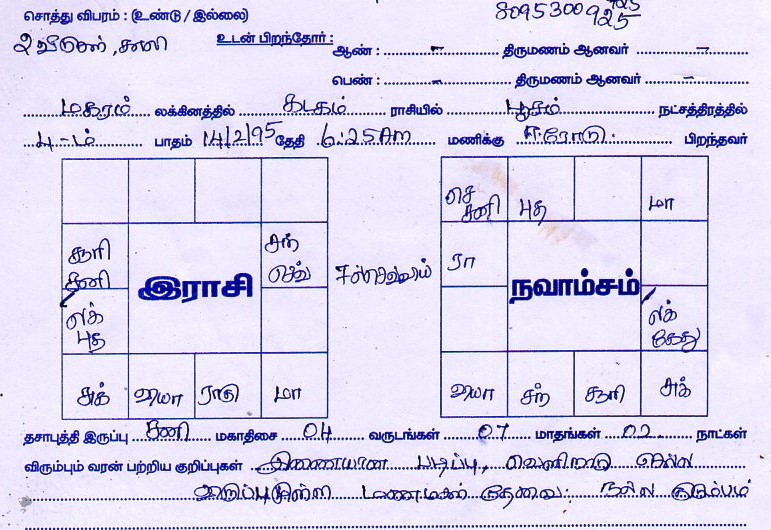 சொத்து விபரம் : (உண்டு / இல்லை) 8095300925
2 வீடுகள், உடன் பிறந்தோர் : ஆண் : – திருமணம் ஆனவர் –
பெண் : – திருமணம் ஆனவர் –
மகரம் லக்கினத்தில் கடகம் ராசியில் பூசம் நட்சத்திரத்தில்
4-ம் பாதம் 14/2/95 தேதி 6:25AM மணிக்கு ஈரோடு. பிறந்தவர்
சூரி
சனி
சந்
செவ்
இராசி
லக்
புத
சுக் ராகு மா
7-ல் செவ்வாய்
செ
சனி
புத
மா
ரா
நவாம்சம்
லக்
கேது
சந் சூரி சுக்
தசாபுத்தி இருப்பு சனி மகாதிசை 04 வருடங்கள் 07 மாதங்கள் 02 நாட்கள்
விரும்பும் வரன் பற்றிய குறிப்புகள் இணையான படிப்பு, வெளிநாடு செல்ல
விருப்பமுள்ள மணமகன் தேவை. நல்ல குடும்பம்